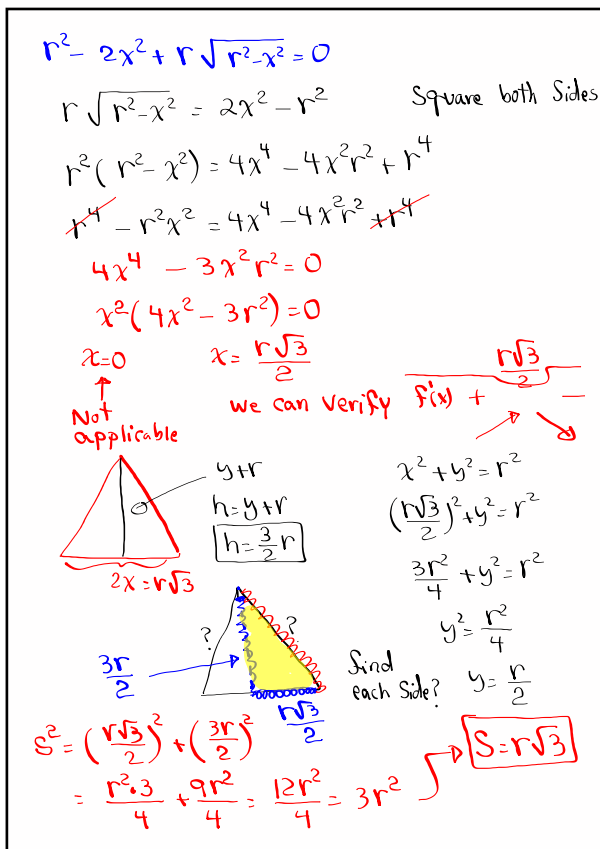 r² - 2x² + r√(r²-x²) = 0
r√(r²-x²) = 2x² - r²
Square both Sides
r²(r² - x²) = 4x⁴ - 4x²r² + r⁴
r⁴ - r²x² = 4x⁴ - 4x²r² + r⁴
4x⁴ - 3x²r² = 0
x²(4x² - 3r²) = 0
x=0
x = r√3/2
Not applicable
we can verify f'(x) + r√3/2 -
y+r
h = y+r
h = 3/2 r
2x = r√3
x² + y² = r²
(r√3/2)² + y² = r²
3r²/4 + y² = r²
y² = r²/4
y = r/2
?
?
3r/2
r√3/2
find each Side?
S² = (r√3/2)² + (3r/2)²
= r²·3/4 + 9r²/4 = 12r²/4 = 3r²
S = r√3